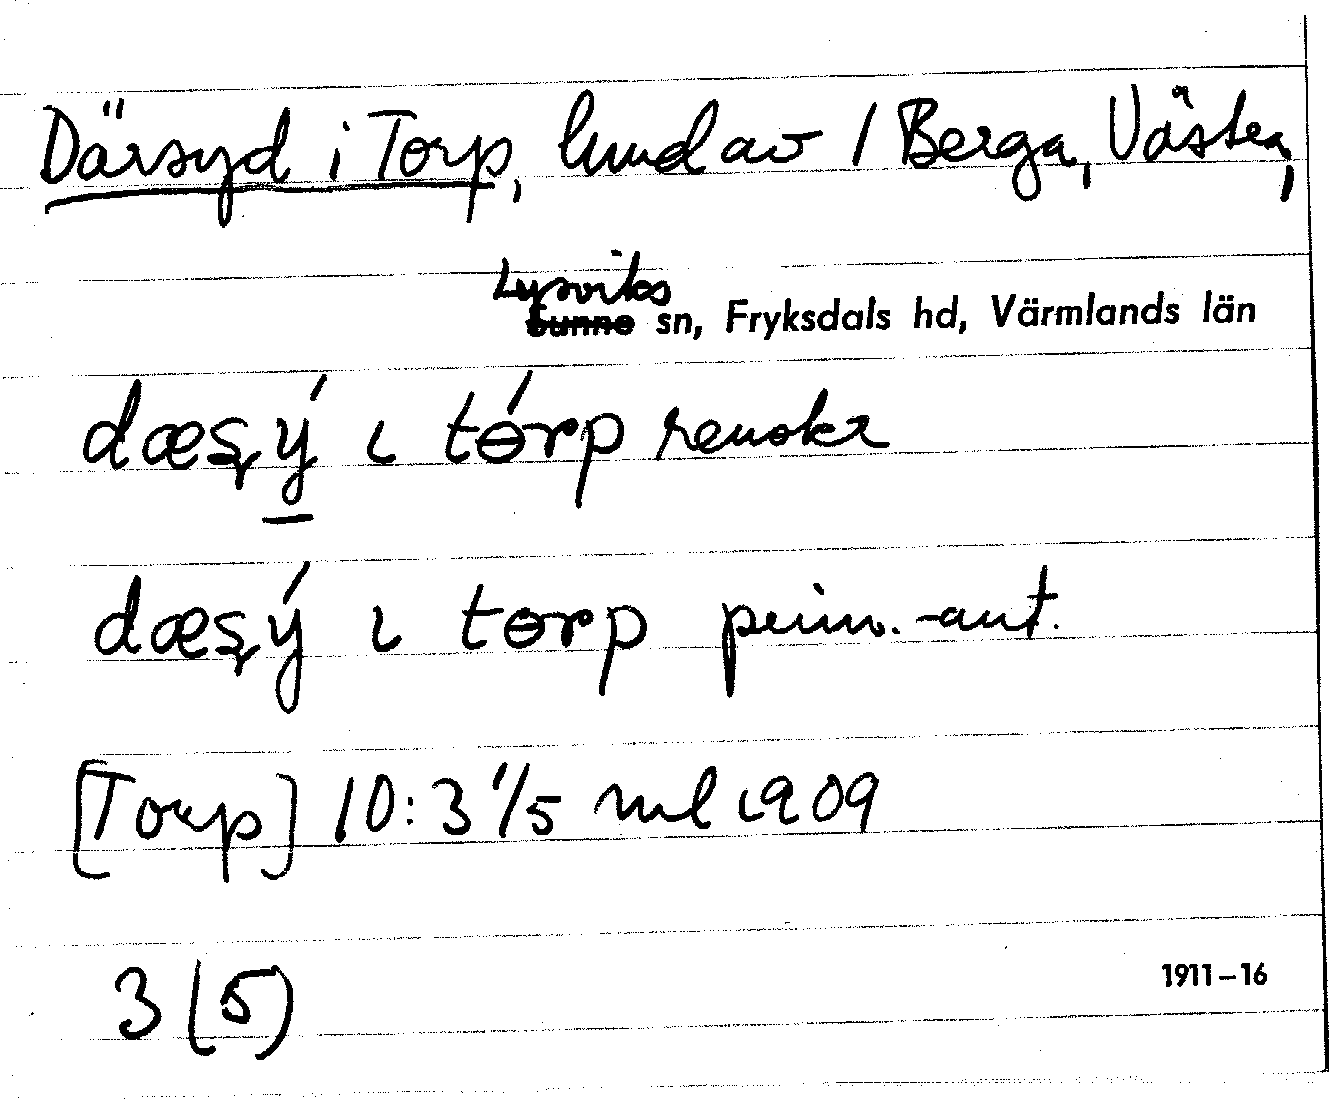 Därsyd i Torp, hmd av 1 Berga, Västra,
Lysviks
Sunne sn, Fryksdals hd, Värmlands län
dæʂý ɩ tɵ́rp renskr
dæʂý ɩ tɵrp prim.-ant.
[Torp] 10:3 1/5 mtl 1909
3 (5)
1911–16